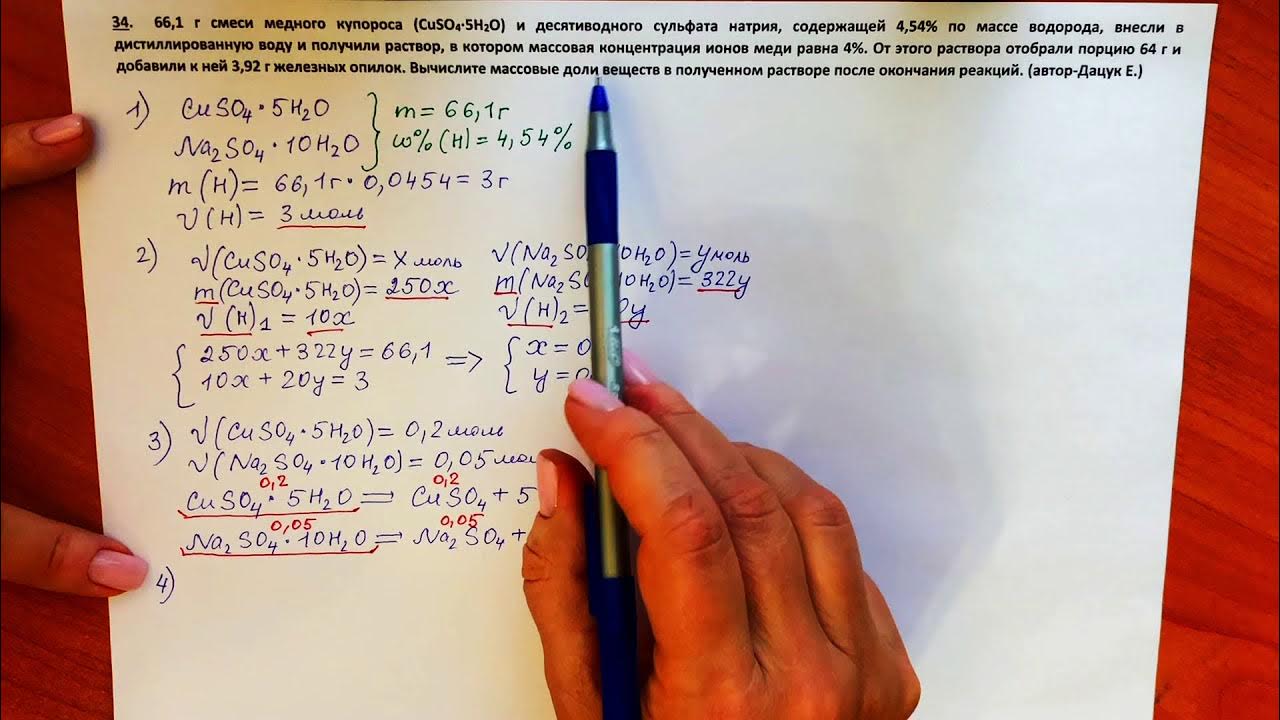 34. 66,1 г смеси медного купороса (CuSO₄·5H₂O) и десятиводного сульфата натрия, содержащей 4,54% по массе водорода, внесли в
дистиллированную воду и получили раствор, в котором массовая концентрация ионов меди равна 4%. От этого раствора отобрали порцию 64 г и
добавили к ней 3,92 г железных опилок. Вычислите массовые доли веществ в полученном растворе после окончания реакций. (автор-Дацук Е.)
1) CuSO₄·5H₂O
Na₂SO₄·10H₂O
m = 66,1г
ω%(H) = 4,54%
m(H) = 66,1г·0,0454 = 3г
ν(H) = 3 моль
2) ν(CuSO₄·5H₂O) = x моль
ν(Na₂SO 0H₂O) = y моль
m(CuSO₄·5H₂O) = 250x
m(Na₂SO 0H₂O) = 322y
ν(H)₁ = 10x
ν(H)₂ = 0y
{ 250x + 322y = 66,1 => { x = 0
10x + 20y = 3 y = 0
3) ν(CuSO₄·5H₂O) = 0,2 моль
ν(Na₂SO₄·10H₂O) = 0,05 мол
0,2 0,2
CuSO₄·5H₂O = CuSO₄ + 5
0,05 0,05
Na₂SO₄·10H₂O = Na₂SO₄ +
4)